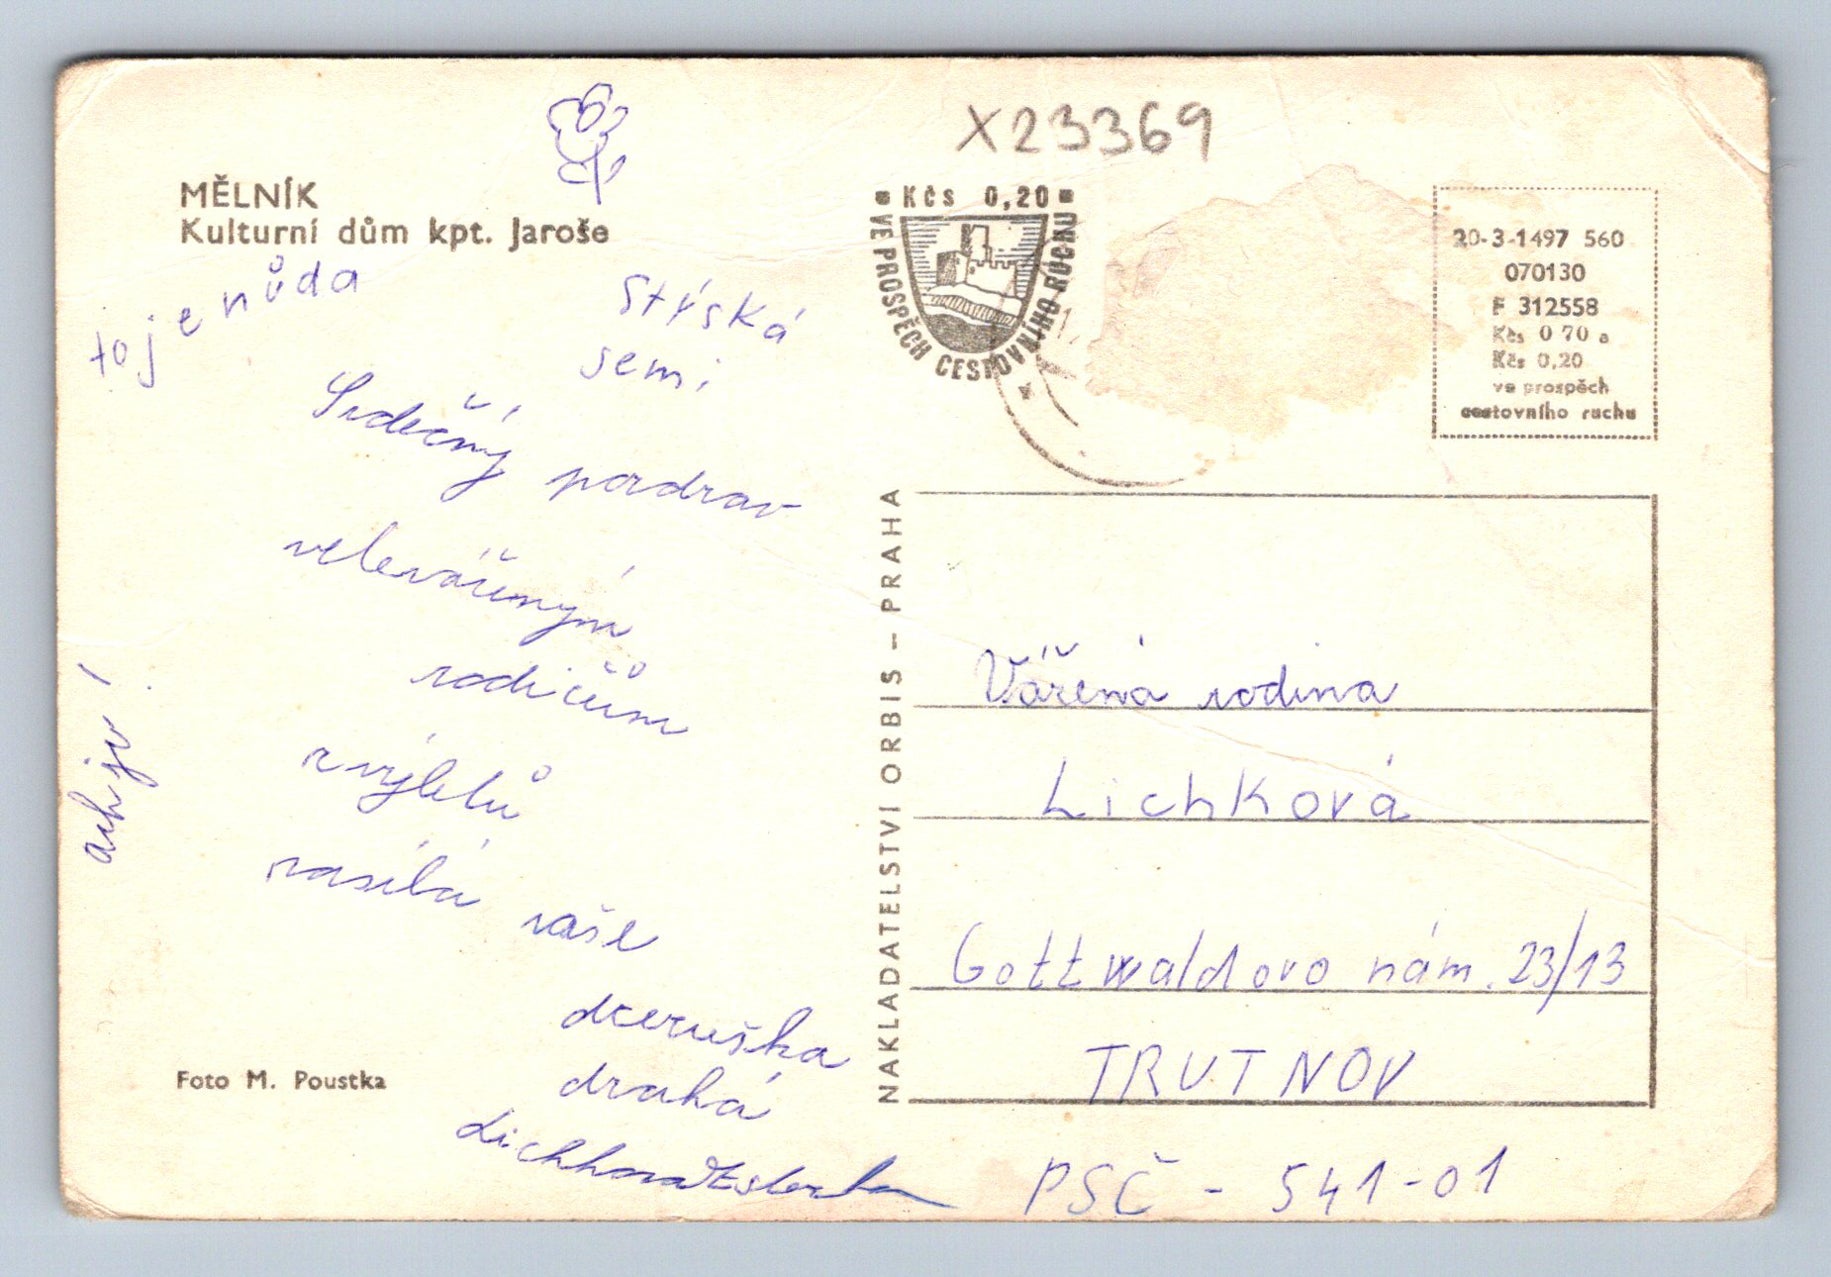 X23369
MĚLNÍK
Kulturní dům kpt. Jaroše
to je nůda
Stýská
se mi
Srdečný pozdrav
veleváženým
rodičům
z výletů
zasílá vaše
dceruška
drahá
Lichková
ach jo!
Foto M. Poustka
Kčs 0,20
VE PROSPĚCH CESTOVNÍHO RUCHU
20-3-1497 560
070130
F 312558
Kčs 0 70 a
Kčs 0,20
ve prospěch
cestovního ruchu
NAKLADATELSTVI ORBIS – PRAHA
Vážená rodina
Lichková
Gottwaldovo nám. 23/13
TRUTNOV
PSČ - 541-01